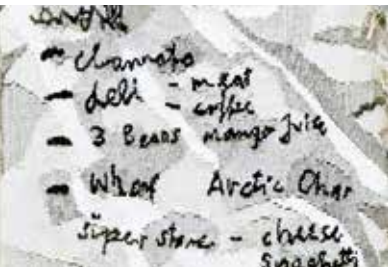 - deli - meat
- coffee
- 3 Beans mango juice
- Wharf Arctic Char
super store - cheese
spaghetti